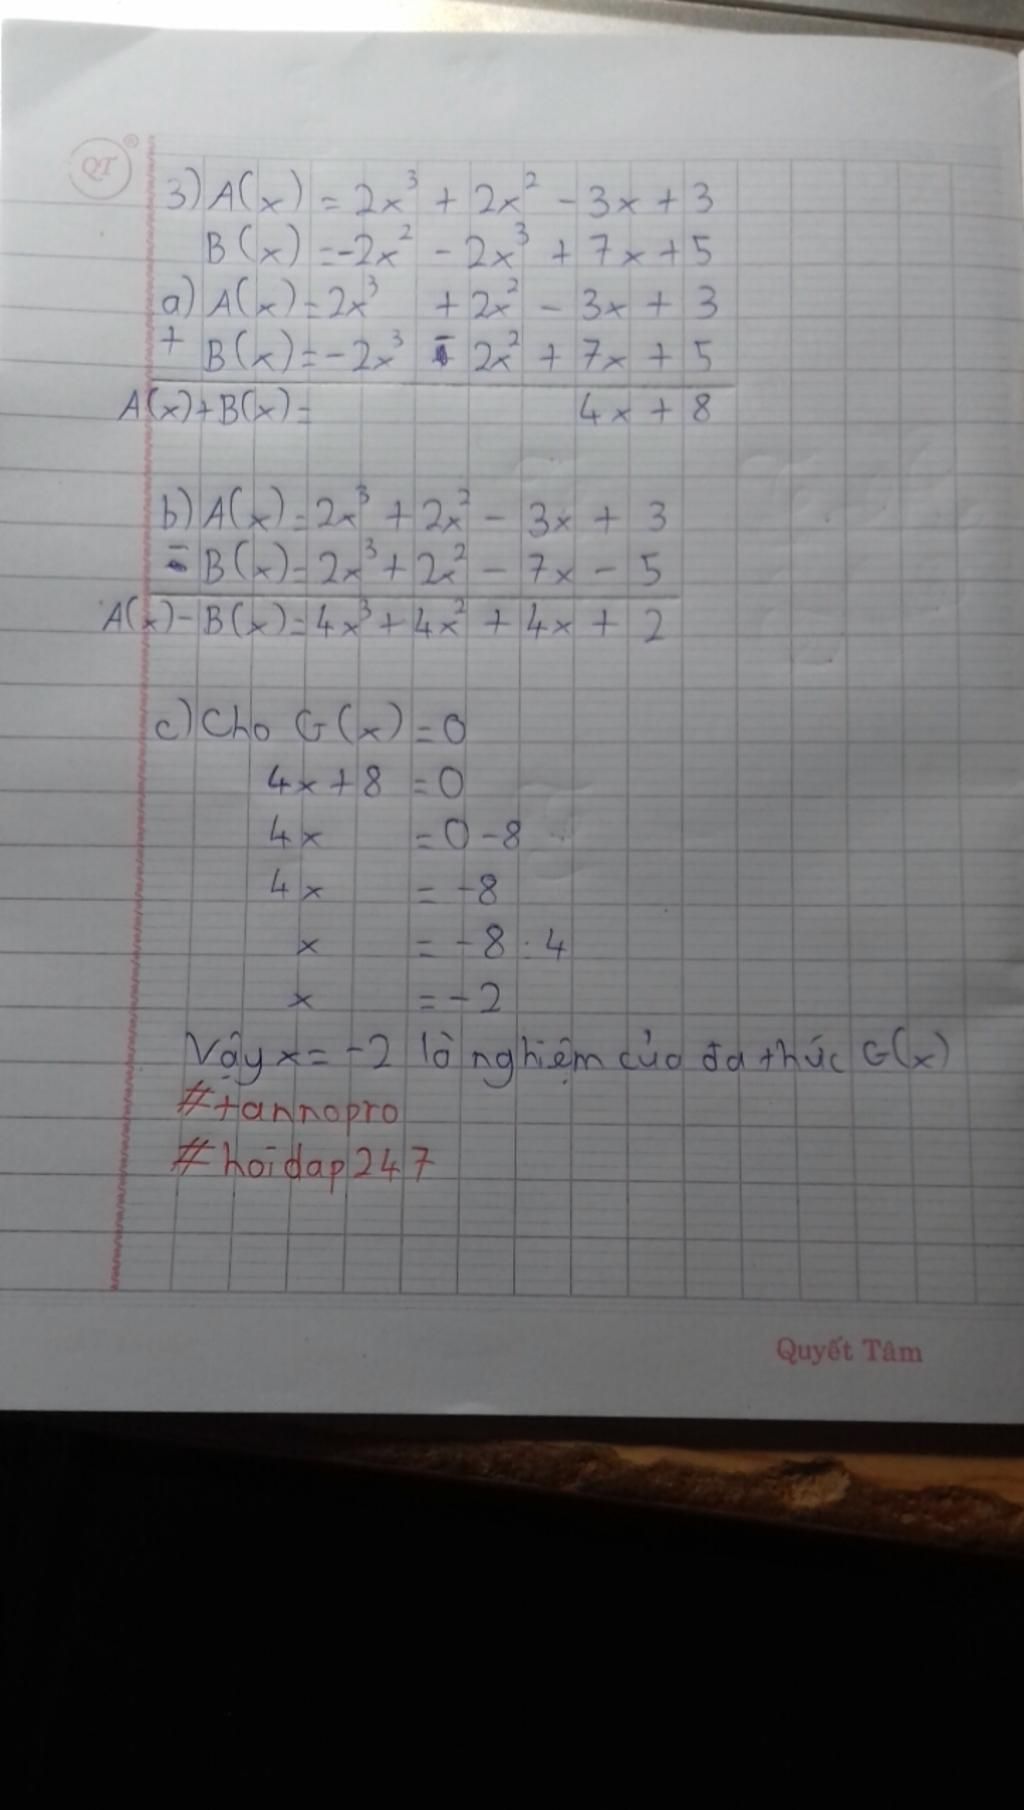 QT ®
3) A(x) = 2x³ + 2x² - 3x + 3
B(x) = -2x² - 2x³ + 7x + 5
a) A(x) = 2x³ + 2x² - 3x + 3
+ B(x) = -2x³ - 2x² + 7x + 5
A(x) + B(x) = 4x + 8
b) A(x) = 2x³ + 2x² - 3x + 3
- B(x) = 2x³ + 2x² - 7x - 5
A(x) - B(x) = 4x³ + 4x² + 4x + 2
c) Cho G(x) = 0
4x + 8 = 0
4x = 0 - 8
4x = -8
x = -8 : 4
x = -2
Vậy x = -2 là nghiệm của đa thức G(x)
#tannopro
#hoidap247
Quyết Tâm